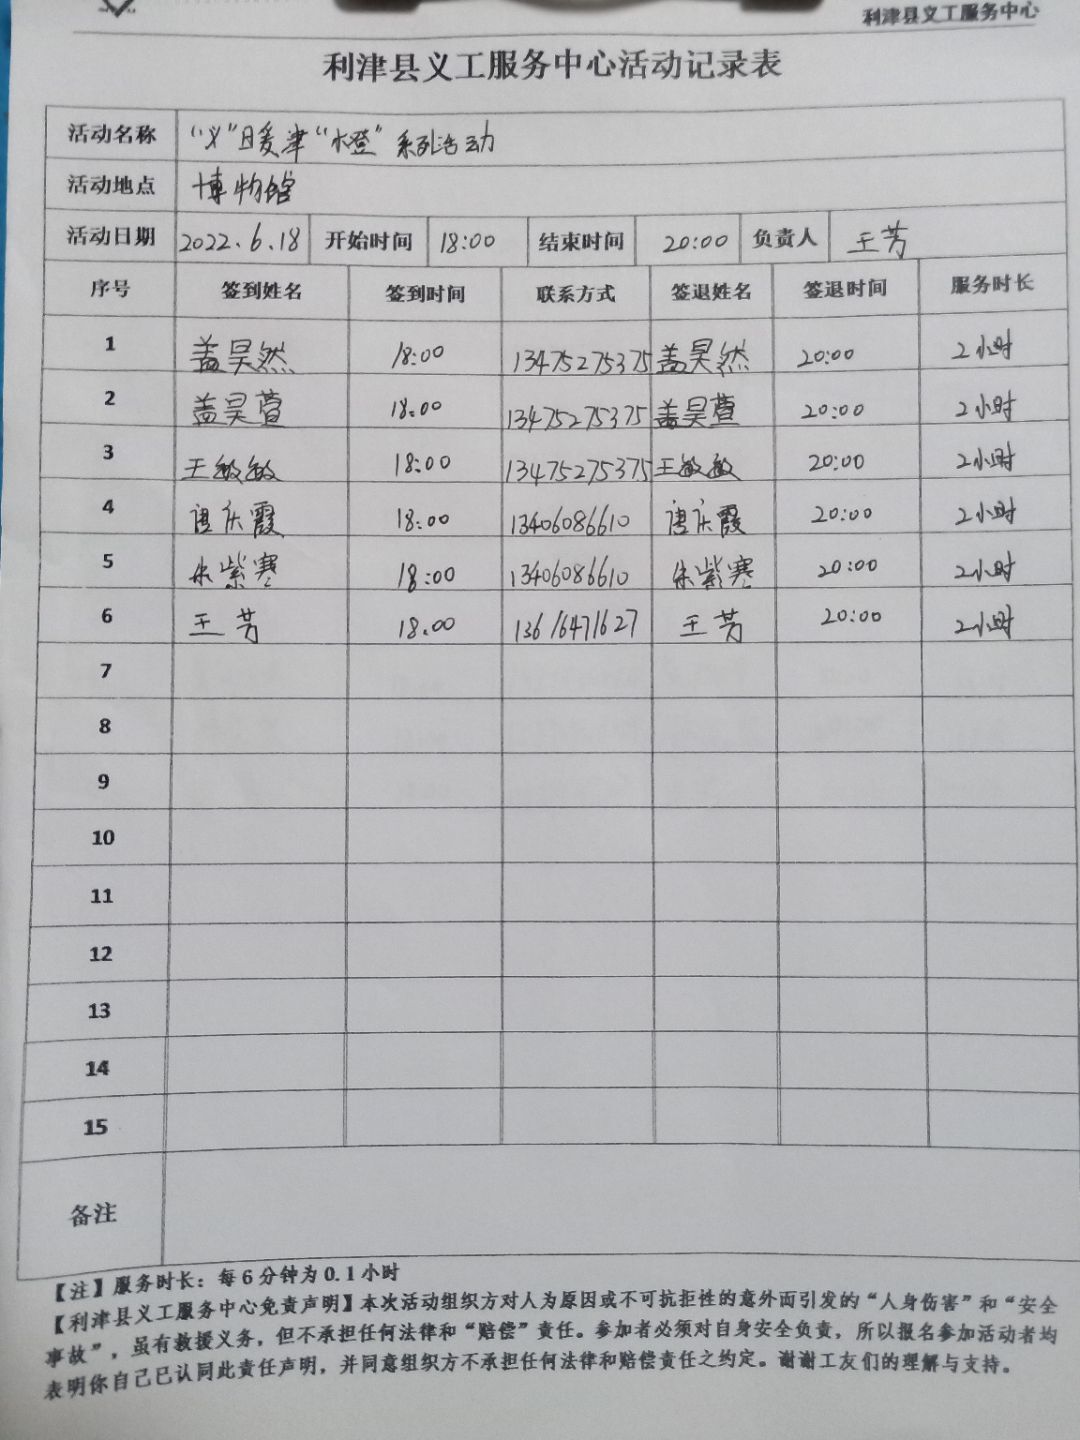 利津县义工服务中心
利津县义工服务中心活动记录表
活动名称 “义”日暖津“橙”系列活动
活动地点 博物馆
活动日期 2022.6.18 开始时间 18:00 结束时间 20:00 负责人 王芳
序号 签到姓名 签到时间 联系方式 签退姓名 签退时间 服务时长
1 盖昊然 18:00 13475275375 盖昊然 20:00 2小时
2 盖昊萱 18:00 13475275375 盖昊萱 20:00 2小时
3 王敏敏 18:00 13475275375 王敏敏 20:00 2小时
4 唐庆霞 18:00 13406086610 唐庆霞 20:00 2小时
5 朱紫寒 18:00 13406086610 朱紫寒 20:00 2小时
6 王芳 18:00 13616471627 王芳 20:00 2小时
7
8
9
10
11
12
13
14
15
备注
【注】服务时长：每6分钟为0.1小时
【利津县义工服务中心免责声明】本次活动组织方对人为原因或不可抗拒性的意外而引发的“人身伤害”和“安全
事故”，虽有救援义务，但不承担任何法律和“赔偿”责任。参加者必须对自身安全负责，所以报名参加活动者均
表明你自己已认同此责任声明，并同意组织方不承担任何法律和赔偿责任之约定。谢谢工友们的理解与支持。